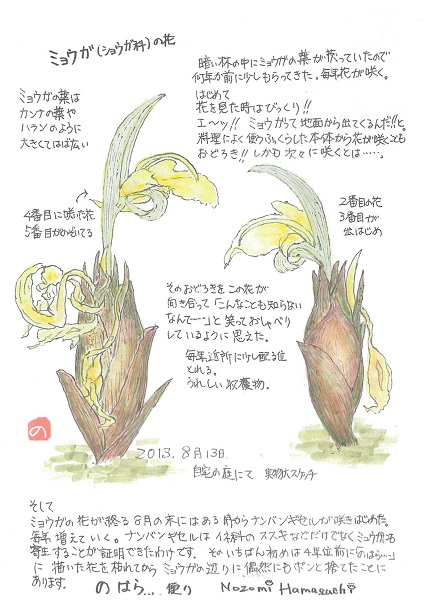 ミョウガ(ショウガ科)の花
暗い林の中にミョウガの葉が茂っていたので
何年か前に少しもらってきた。毎年花が咲く。
はじめて
花を見た時はびっくり!!
エ〜ッ!! ミョウガって地面から出てくるんだ!!と。
料理によく使うふっくらした本体から花が咲くことも
おどろき!! しかも次々に咲くとは……。
ミョウガの葉は
カンナの葉や
ハランのように
大きくてはば広い
4番目に咲いた花
5番目がかれてる
2番目の花
3番目が
出はじめ
そのおどろきをこの花が
向き合って「こんなことも知らない
なんて……」と笑っておしゃべり
しているように思えた。
毎年近所に少し配る位
とれる。
うれしい収穫物。
の
2013.8月13日
自宅の庭にて 実物大スケッチ
そして
ミョウガの花が終る8月の末にはある時からナンバンギセルが咲きはじめた。
毎年増えていく。ナンバンギセルはイネ科のススキなどだけでなくミョウガにも
寄生することが証明できたわけです。そのいちばん初めは4年位前に「のはら…」
に描いた花を枯れてからミョウガの辺りに偶然にもポンと捨てたことに
あります。
のはら…便り Nozomi Hamaguchi